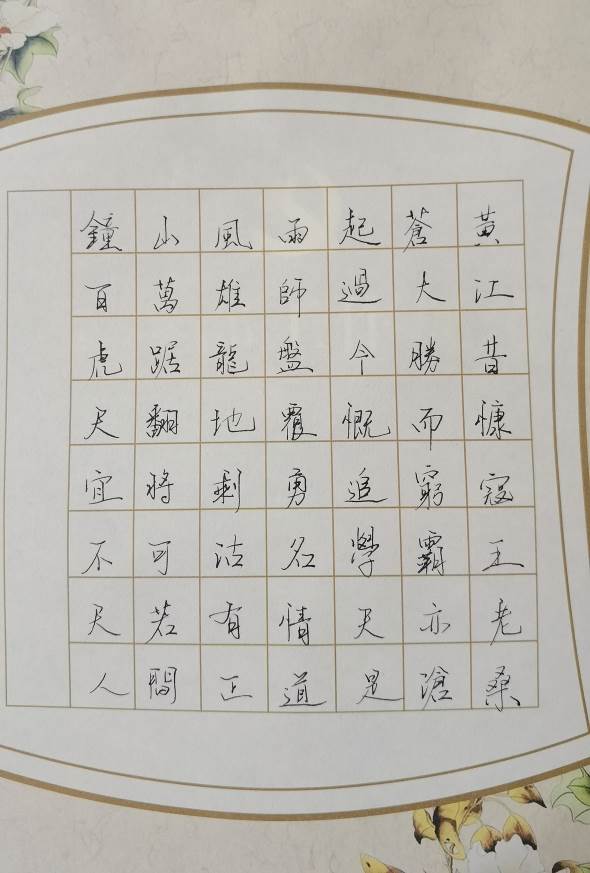 鐘山風雨起蒼黃
百萬雄師過大江
虎踞龍盤今勝昔
天翻地覆慨而慷
宜將剩勇追窮寇
不可沽名學霸王
天若有情天亦老
人間正道是滄桑